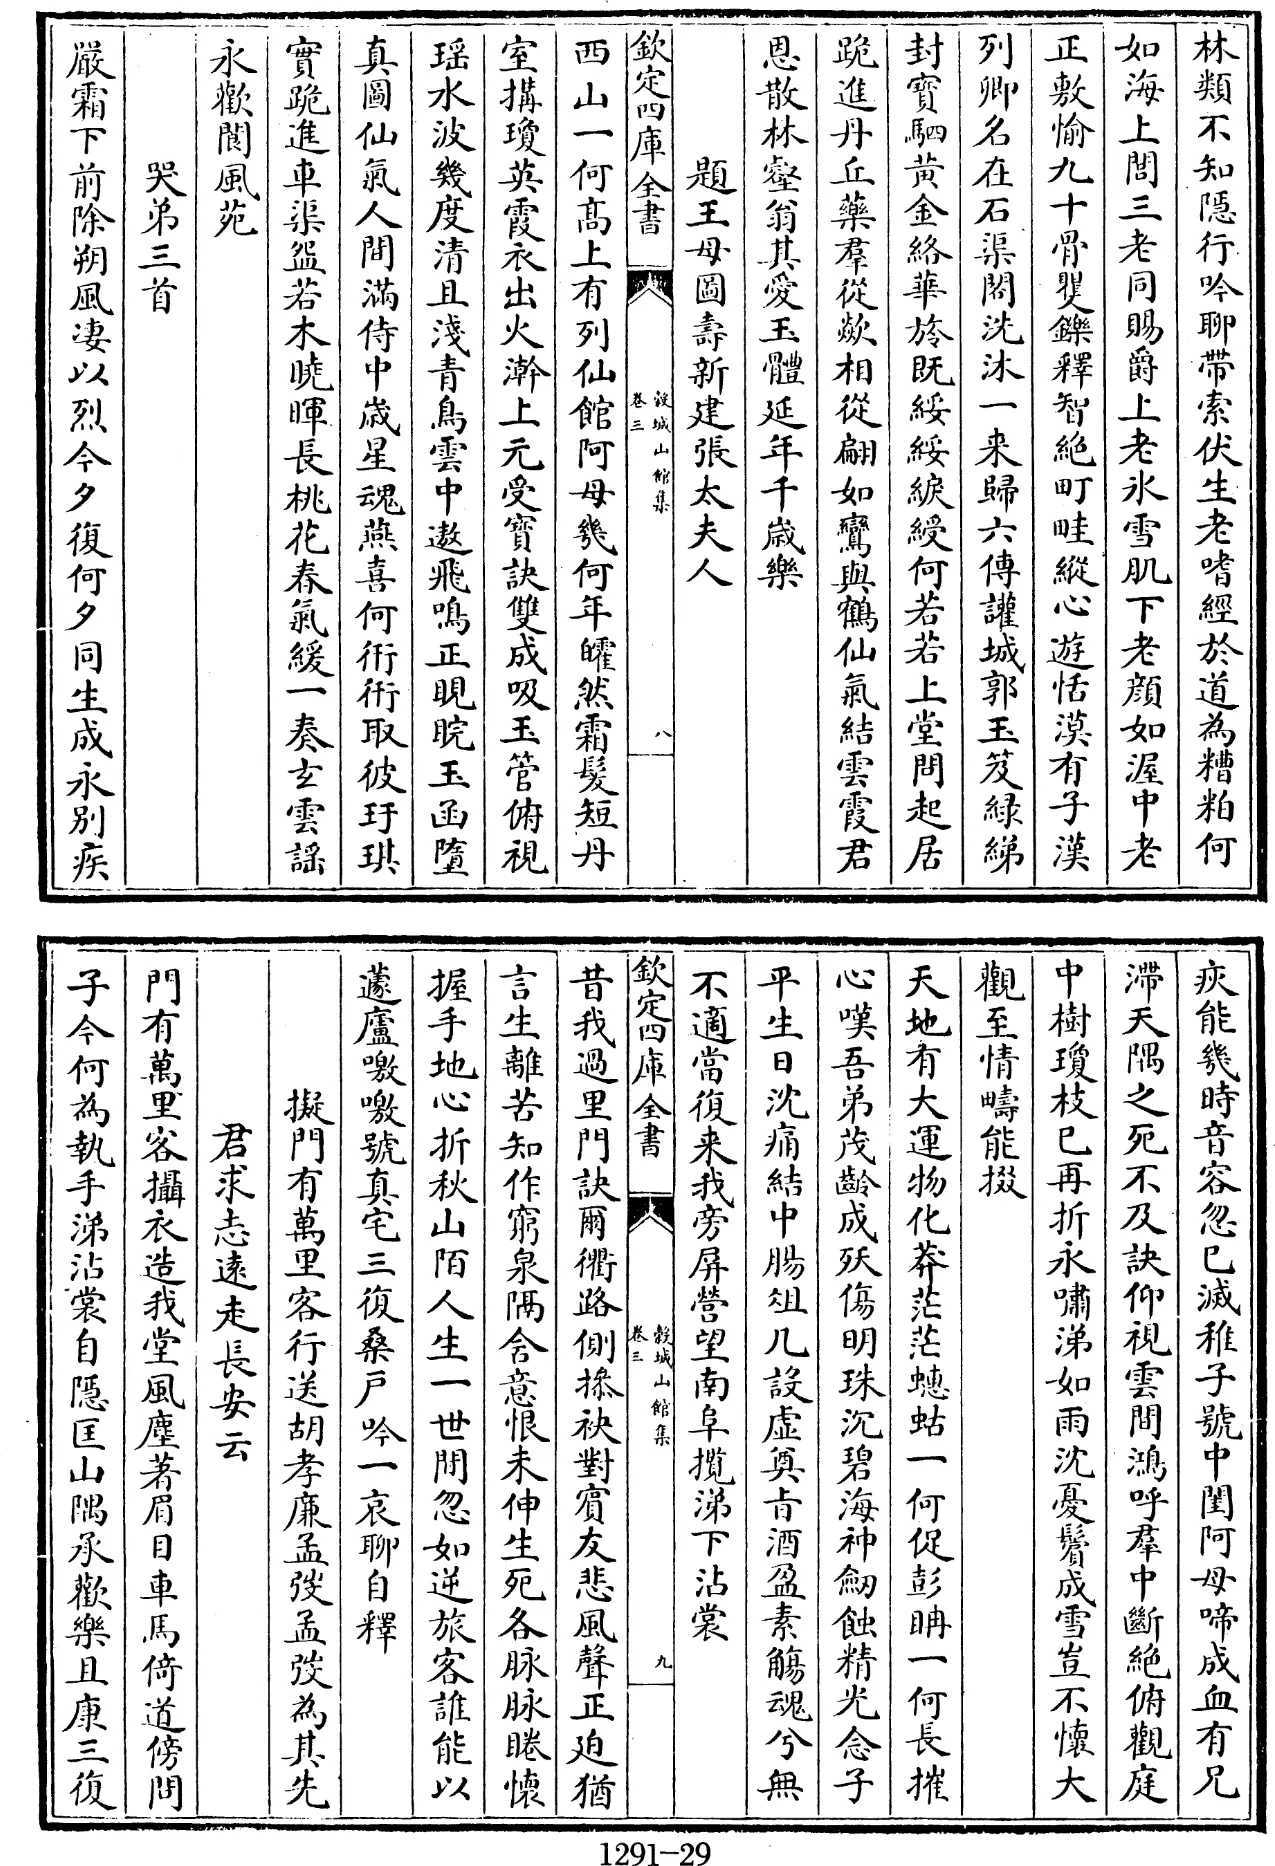 林類不知隠行吟聊帶索伏生老嗜經於道為糟粕何
如海上閭三老同賜爵上老氷雪肌下老顔如渥中老
正敷愉九十骨矍鑠釋智絶町畦縱心遊恬漠有子漢
列卿名在石渠閣洗沐一来歸六傳讙城郭玉笈緑綈
封寳駟黄金絡華旍既綏綏綟綬何若若上堂問起居
跪進丹丘藥羣從歘相從翩如鸞與鶴仙氣結雲霞君
恩散林壑翁其愛玉體延年千歳樂
題王母圖壽新建張太夫人
欽定四庫全書
榖城山館集
卷三
八
西山一何髙上有列仙館阿母幾何年皬然霜髮短丹
室搆瓊英霞衣出火澣上元受寳訣雙成吸玉管俯視
瑶水波幾度清且淺青鳥雲中遨飛鳴正睍睆玉函墮
真圖仙氣人間滿侍中歳星魂燕喜何衎衎取彼玗琪
實跪進車渠盌若木曉暉長桃花春氣緩一奏玄雲謡
永歡閬風苑
哭弟三首
嚴霜下前除朔風凄以烈今夕復何夕同生成永别疾
疢能幾時音容忽已滅稚子號中閨阿母啼成血有兄
滯天隅之死不及訣仰視雲間鴻呼羣中斷絶俯觀庭
中樹瓊枝已再折永嘯涕如雨沈憂鬢成雪豈不懐大
觀至情疇能掇
天地有大運物化莽茫茫蟪蛄一何促彭聃一何長摧
心嘆吾弟茂齡成殀傷明珠沉碧海神劒蝕精光念子
平生日沈痛結中腸俎几設虚奠㫖酒盈素觴魂兮無
不適當復来我旁屏營望南阜攬涕下沾裳
欽定四庫全書
榖城山館集
卷三
九
昔我過里門訣爾衢路側摻袂對賓友悲風聲正廹猶
言生離苦知作窮泉隔含意恨未伸生死各脉脉睠懐
握手地心折秋山陌人生一世間忽如逆旅客誰能以
蘧廬噭噭號真宅三復桑戸吟一哀聊自釋
擬門有萬里客行送胡孝廉孟弢孟弢為其先
君求志逺走長安云
門有萬里客攝衣造我堂風塵著眉目車馬倚道傍問
子今何為執手涕沾裳自隠匡山隅承歡樂且康三復
1291-29